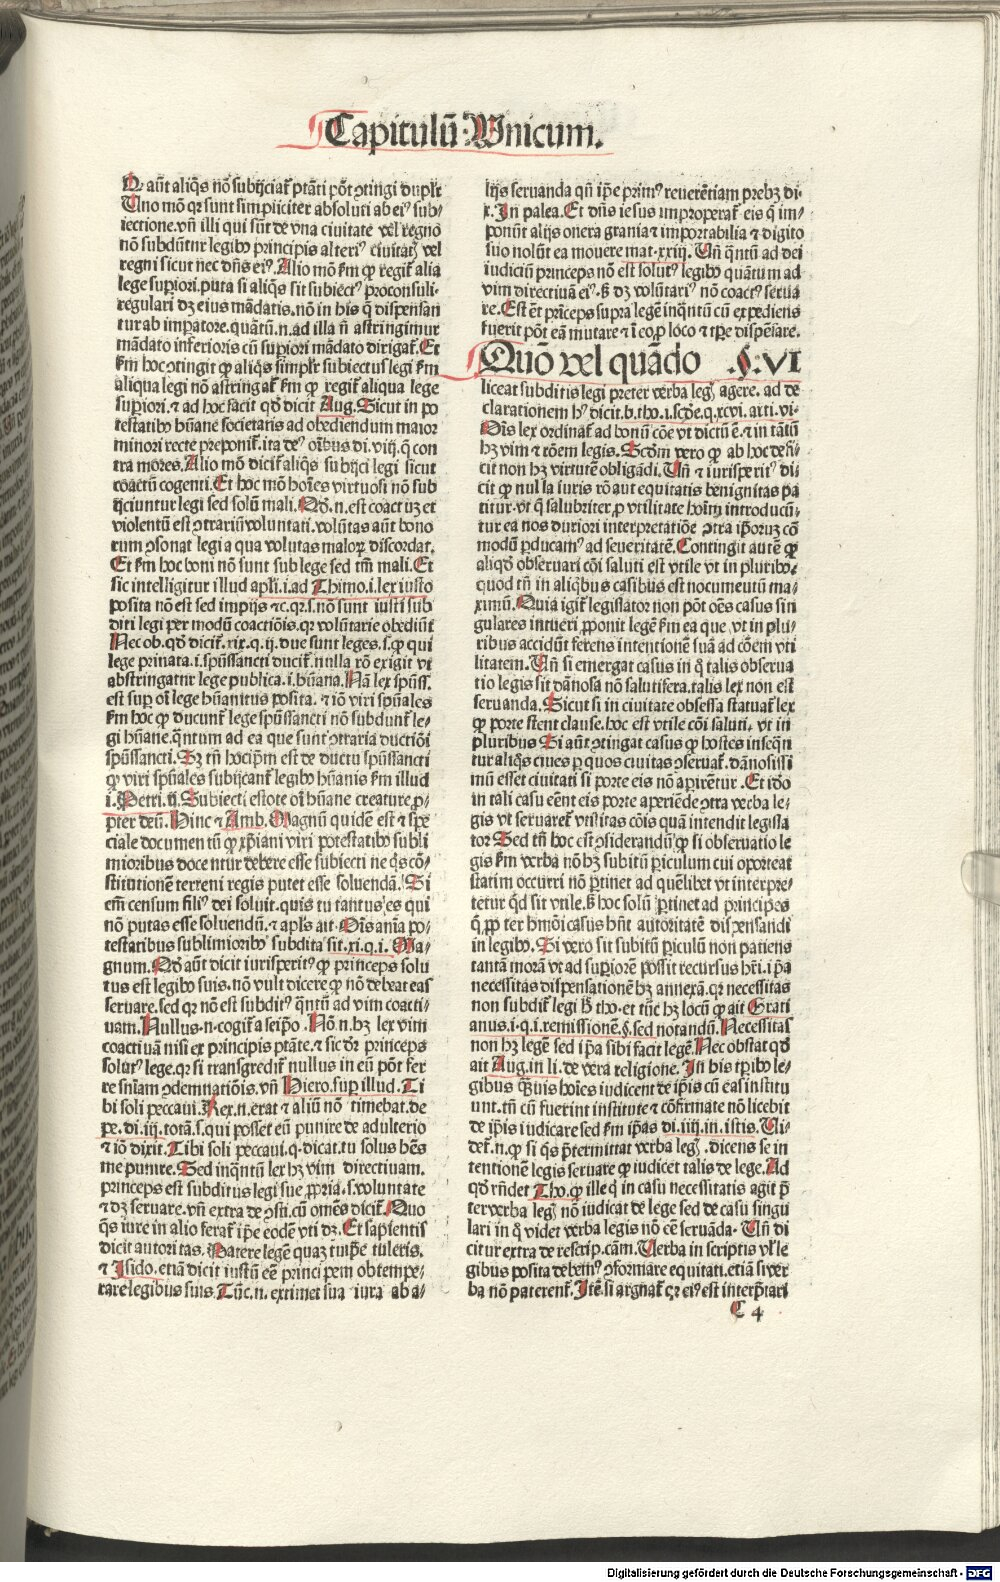 Capitulū Unicum.
Q aūt aliq̄s nō subijciat̄ ptāti pōt ꝯtingi duplr̄
Uno mō qr sunt simpliciter absoluti ab ei⁹ sub⸗
iectione.vn̄ illi qui sūt de vna ciuitate vel regno
nō subdūtur legibꝰ principis alteri⁹ ciuitatꝭ vel
regni sicut nec dn̄s ei⁹. Alio mō fm ꝙ regit̄ alia
lege supiori.puta si aliqs sit subiect⁹ proconsuli⸗
regulari dꝫ eius mādatis.nō in his q̄ dispensan
tur ab impatore.quātū.n.ad illa n̄ astringimur
mādato inferioris cū supiori mādato dirigat̄. Et
fm hoc ꝯtingit ꝙ aliqs simplr̄ subiectus legi fm
aliqua legi nō astringat̄ fm ꝙ regit̄ aliqua lege
supiori.⁊ ad hoc facit qd̄ dicit Aug. Sicut in po
testatibꝰ hūane societatis ad obediendum maior
minori recte preponit̄.ita de⁹ oībus di.viij.q̄ con
tra mores. Alio mō dicit̄ aliqs subijci legi sicut
coactū cogenti. Et hoc mō hoīes virtuosi nō sub
ijciuntur legi sed solū mali. Qd̄.n.est coactūꝫ et
violentū est ꝯtrariū voluntati.volūtas aūt bono
rum ꝯsonat legi a qua volūtas maloꝝ discordat.
Et fm hoc boni nō sunt sub lege sed tm̄ mali. Et
sic intelligitur illud apl̄i.i.ad Thimo.i.lex iusto
posita nō est sed impijs ⁊c.qr.s.nō sunt iusti sub
diti legi per modū coactiōis.qr volūtarie obediūt
Nec ob.qd̄ dicit̄.xix.q.ij.due sunt leges.s.ꝙ qui
lege priuata.i.spūssancti ducit̄.nulla rō exigit vt
abstringatur lege publica.i.hūana. Nā lex spūss.
est sup oī lege hūanitus posita.⁊ iō viri spūales
fm hoc ꝙ ducunt̄ lege spūssancti nō subdunt̄ le⸗
gi hūane.q̄ntum ad ea que sunt ꝯtraria ductiōi
spūssancti. Sꝫ tn̄ hocip̄m est de ductu spūssancti
ꝙ viri spūales subijcant̄ legibꝰ hūanis fm illud
i.Petri.ij. Subiecti estote oī hūane creature p⸗
pter deū. Hinc ⁊ Amb. Magnū quidē est ⁊ spe
ciale documentū ꝙ xp̄iani viri potestatibꝰ subli
mioribus docentur debere esse subiecti ne q̄s cō⸗
stitutionē terreni regis putet esse soluendā. Si
em̄ censum fili⁹ dei soluit.quis tu tantus es qui
nō putas esse soluendū.⁊ apl̄s ait. Oīs anīa po⸗
testatibus sublimioribꝰ subdita sit.xi.q.i. Ma⸗
gnum. Qd̄ aūt dicit iurisperit⁹ ꝙ princeps solu
tus est legibꝰ suis.nō vult dicere ꝙ nō debeat eas
seruare.sed qr nō est subdit⁹ q̄ntū ad vim coacti⸗
uam. Nullus.n.cogit̄ a seip̄o. Nō.n.hꝫ lex vim
coactiuam nisi ex principis ptāte.⁊ sic dr̄ princeps
solut⁹ lege.qr si transgredit̄ nullus in eū pōt fer
re sn̄iam ꝯdemnatiōis.vn̄ Hiero.sup illud. Ti
bi soli peccaui. Rex.n.erat ⁊ aliū nō timebat.de
pe.di.iij.totā.s.qui posset eū punire de adulterio
⁊ iō dixit. Tibi soli peccaui.q.dicat.tu solus hēs
me punire. Sed inq̄ntū lex hꝫ vim directiuam.
princeps est subditus legi sue ppria.s.voluntate
⁊ dꝫ seruare.vn̄ extra de ꝯsti.cū om̄es dicit̄. Quo
q̄s iure in alio ferat̄ ip̄e eodē vti dꝫ. Et sapientis
dicit autoritas. Patere legē quaꝫ tuip̄e tuleris.
⁊ Isido.etiā dicit iustū eē principem obtempe⸗
rare legibus suis. Tūc.n.extimet sua iura ab a⸗
lijs seruanda qn̄ ip̄e prim⁹ reuerētiam prebꝫ di⸗
x. In palea. Et dn̄s iesus improperat̄ eis q̄ im⸗
ponūt alijs onera grauia ⁊ importabilia ⁊ digito
suo nolūt ea mouere mat.xxiij. Un̄ q̄ntū ad dei
iudiciū princeps nō est solut⁹ legibꝰ quātum ad
vim directiuā ei⁹.s̄ dꝫ volūtari⁹ nō coact⁹ serua
re. Est ēt prīceps supra legē inq̄ntū cū expediens
fuerit pōt eā mutare ⁊ ī eo p loco ⁊ tpe dispēsare.
Quō vel quādo .§.VI
liceat subditis legi preter verba legꝭ agere. ad de
clarationem h⁹ dicit.b.tho.i.scd̄e.q.xcvi.arti.vi⸗
Oīs lex ordinat̄ ad bonū cōe vt dictū ē.⁊ in tātū
hꝫ vim ⁊ rōem legis. Scd̄m vero ꝙ ab hoc defi⸗
cit non hꝫ virtutē obligādi. Un̄ ⁊ iurisperit⁹ di⸗
cit ꝙ nulla iuris rō aut equitatis benignitas pa
titur.vt q̄ salubriter p vtilitate hoīm introducū⸗
tur ea nos duriori interpretatiōe ꝯtra ip̄oruꝫ cō
modū pducam⁹ ad seueritatē. Contingit autē ꝙ
aliqd̄ obseruari cōi saluti est vtile vt in pluribꝰ.
quod tn̄ in aliqbus casibus est nocumentū ma⸗
ximū. Quia igit̄ legislator non pōt oēs casus sin
gulares intueri pponit legē fm ea que vt in plu⸗
ribus accidūt ferens intentionē suā ad cōem vti
litatem. Un̄ si emergat casus in q̄ talis obserua
tio legis sit dānosa nō salutifera.talis lex non est
seruanda. Sicut si in ciuitate obsessa statuat̄ lex
ꝙ porte stent clause.hoc est vtile cōi saluti. vt in
pluribus Si aūt ꝯtingat casus ꝙ hostes inseq̄n
tur aliq̄s ciues p quos ciuitas ꝯseruat̄.dānosissi
mū esset ciuitati si porte eis nō apirētur. Et ideo
in tali casu eēnt eis porte aperiēde ꝯtra verba le⸗
gis vt seruaret̄ vtilitas cōis quā intendit legisla
tor Sed tn̄ hoc est ꝯsiderandū ꝙ si obseruatio le
gis fm verba nō hꝫ subitū piculum cui oporteat
statim occurri nō ptinet ad quēlibet vt interpre⸗
tetur qd̄ sit vtile.s̄ hoc solū ptinet ad principes
q̄ ppter hmōi casus hn̄t autoritatē dispensandi
in legibꝰ. Si vero sit subitū piculū non patiens
tantā morā vt ad supiorē possit recursus hr̄i.ip̄a
necessitas dispensationē hꝫ annexā.qr necessitas
non subdit̄ legi h̄ tho.⁊ tūc hꝫ locū ꝙ ait Grati
anus.i.q.i.remissionē.§.sed notandū. Necessitas
non hꝫ legē sed ip̄a sibi facit legē. Nec obstat qd̄
ait Aug.in li.de vera religione. In his tpibꝰ le⸗
gibus q̄uis hoīes iudicent de ip̄is cū eas institu
unt.tn̄ cū fuerint institute ⁊ cōfirmate nō licebit
de ip̄is iudicare sed fm ip̄as di.iiij.in istis. Ui⸗
det̄.n.ꝙ si q̄s ptermittat verba legꝭ. dicens se in
tentionē legis seruare ꝙ iudicet talis de lege. Ad
qd̄ rn̄det Tho.ꝙ ille q̄ in casu necessitatis agit p̄
ter verba legꝭ nō iudicat de lege sed de casu singu
lari in q̄ videt verba legis nō eē seruāda. Un̄ di
citur extra de rescrip.cām. Uerba in scriptis vl̄ le
gibus posita debem⁹ ꝯformare equitati.etiā si ver
ba nō paterent̄. Itē.si arguat̄ qr ei⁹ est interptari
C 4
Digitalisierung gefördert durch die Deutsche Forschungsgemeinschaft - DFG